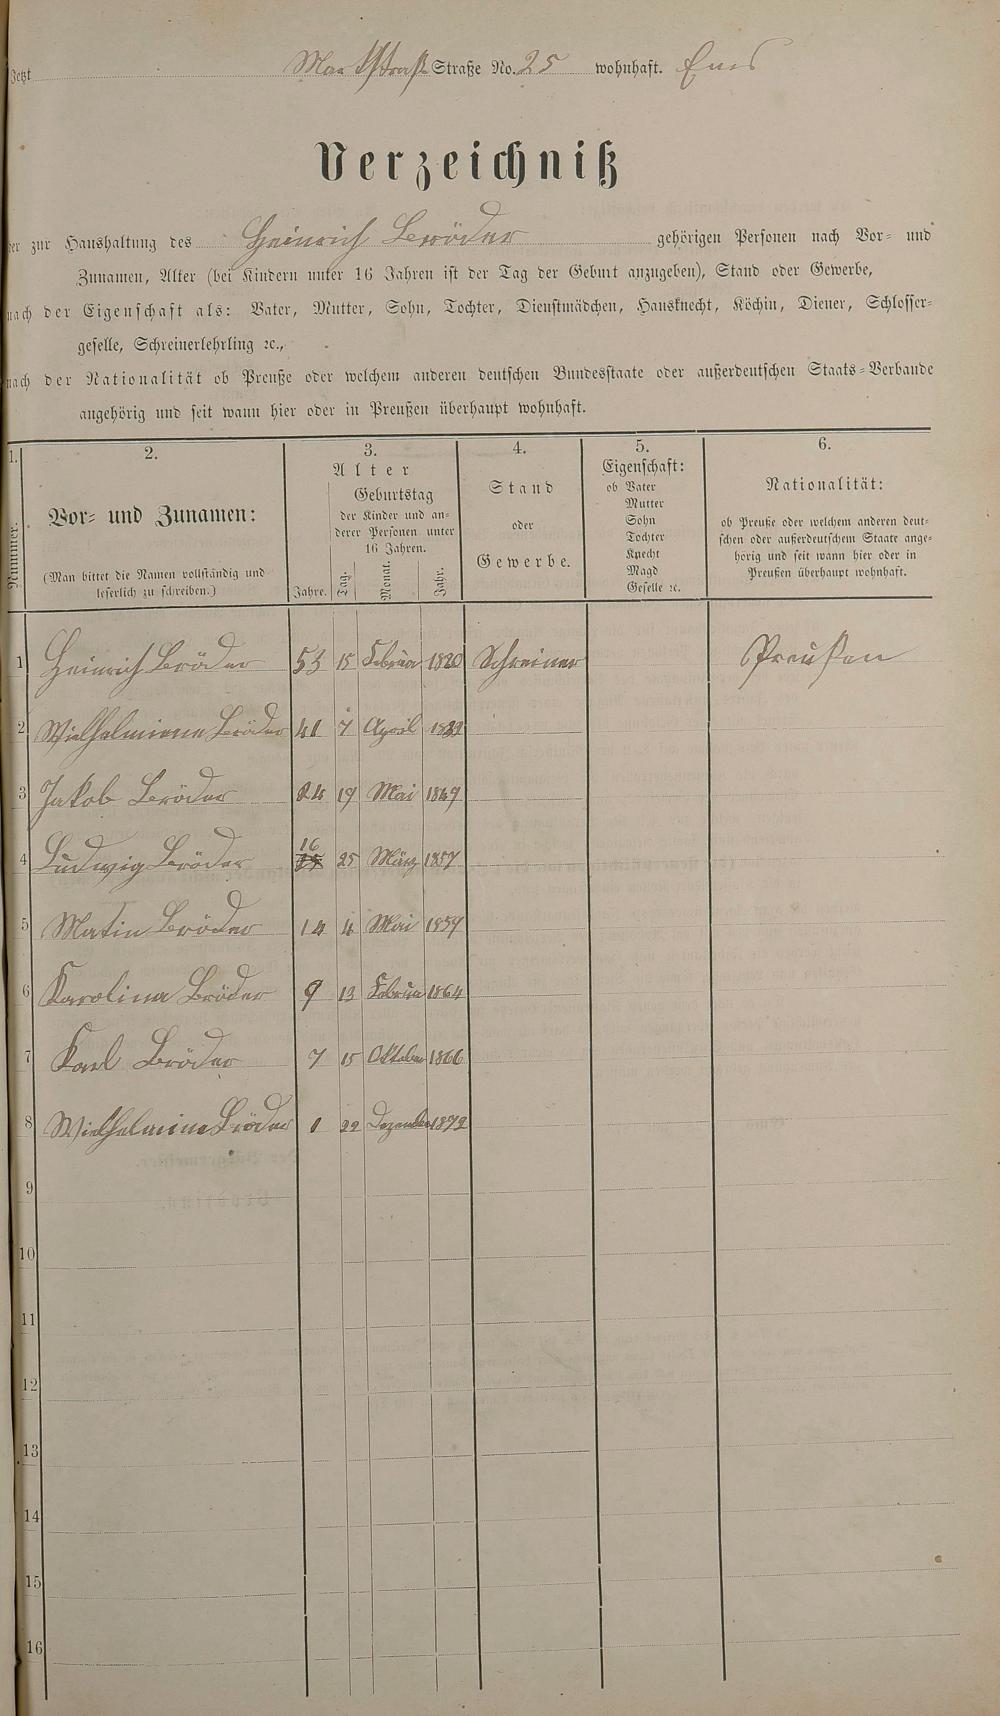 Jetzt Marktstraß Straße No. 25 wohnhaft. Ems
Verzeichniß
der zur Haushaltung des Heinrich Bröder gehörigen Personen nach Vor- und
Zunamen, Alter (bei Kindern unter 16 Jahren ist der Tag der Geburt anzugeben), Stand oder Gewerbe,
nach der Eigenschaft als: Vater, Mutter, Sohn, Tochter, Dienstmädchen, Hausknecht, Köchin, Diener, Schlosser-
geselle, Schreinerlehrling ꝛc.,
nach der Nationalität ob Preuße oder welchem anderen deutschen Bundesstaate oder außerdeutschen Staats-Verbande
angehörig und seit wann hier oder in Preußen überhaupt wohnhaft.
1. 2. 3. 4. 5. 6.
Nummer.
Vor- und Zunamen:
(Man bittet die Namen vollständig und
leserlich zu schreiben.)
Alter
Jahre.
Geburtstag
der Kinder und an-
derer Personen unter
16 Jahren.
Tag. Monat. Jahr.
Stand
oder
Gewerbe.
Eigenschaft:
ob Vater
Mutter
Sohn
Tochter
Knecht
Magd
Geselle ꝛc.
Nationalität:
ob Preuße oder welchem anderen deut-
schen oder außerdeutschem Staate ange-
hörig und seit wann hier oder in
Preußen überhaupt wohnhaft.
1 Heinrich Bröder 53 15 Februar 1820 Schreiner Preußen
2 Wielhelmiena Bröder 41 7 April
3 Jakob Bröder 24 19 Mai 1849
4 Ludwig Bröder 16 25 März 1857
5 Matin Bröder 14 4 Mai 1859
6 Karolina Bröder 9 13 Februar 1864
7 Karl Bröder 7 15 Oktober 1866
8 Wielhelmina Bröder 1 22 Dezember 1872
9
10
11
12
13
14
15
16